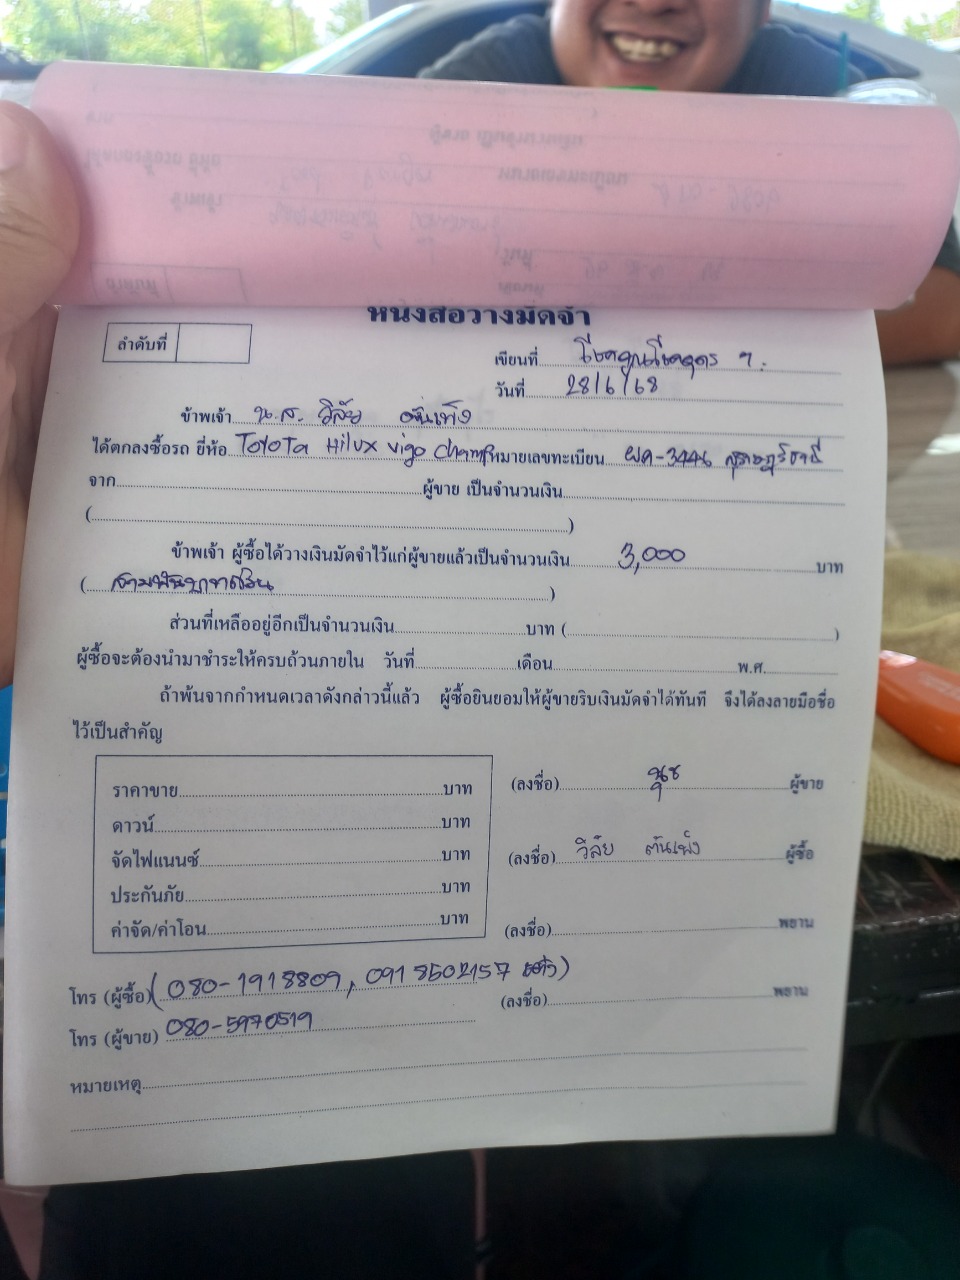 หนังสือวางมัดจำ
ลำดับที่
เขียนที่
วันที่ 28/6/68
ข้าพเจ้า น.ส. วิลัย ตันเพ้ง
ได้ตกลงซื้อรถ ยี่ห้อ TOYOTA Hilux vigo champ หมายเลขทะเบียน ผค-3446 สุราษฎร์ธานี
จาก ผู้ขาย เป็นจำนวนเงิน
( )
ข้าพเจ้า ผู้ซื้อได้วางเงินมัดจำไว้แก่ผู้ขายแล้วเป็นจำนวนเงิน 3,000 บาท
( สามพันบาทถ้วน )
ส่วนที่เหลืออยู่อีกเป็นจำนวนเงิน บาท ( )
ผู้ซื้อจะต้องนำมาชำระให้ครบถ้วนภายใน วันที่ เดือน พ.ศ.
ถ้าพ้นจากกำหนดเวลาดังกล่าวนี้แล้ว ผู้ซื้อยินยอมให้ผู้ขายริบเงินมัดจำได้ทันที จึงได้ลงลายมือชื่อ
ไว้เป็นสำคัญ
ราคาขาย บาท
ดาวน์ บาท
จัดไฟแนนซ์ บาท
ประกันภัย บาท
ค่าจัด/ค่าโอน บาท
(ลงชื่อ) นุช ผู้ขาย
(ลงชื่อ) วิลัย ตันเพ้ง ผู้ซื้อ
(ลงชื่อ) พยาน
(ลงชื่อ) พยาน
โทร (ผู้ซื้อ) (080-1918809, 0918502157
โทร (ผู้ขาย) 080-5970519
หมายเหตุ